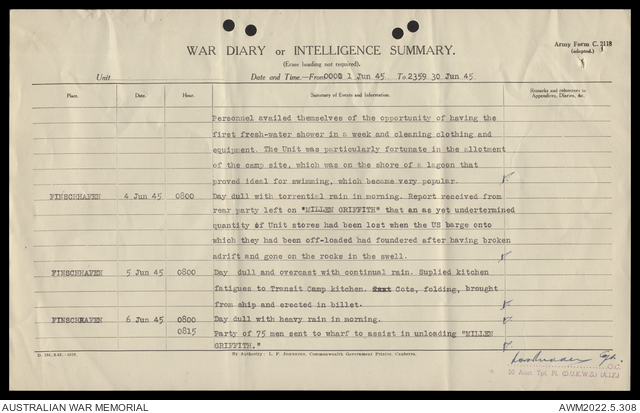 Army Form C. 2118
(adapted.)
WAR DIARY or INTELLIGENCE SUMMARY.
(Erase heading not required).
Unit
Date and Time.—From 0001 1 Jun 45 To 2359 30 Jun 45.
Place. Date. Hour. Summary of Events and Information. Remarks and references to Appendices, Diaries, &c.
Personnel availed themselves of the opportunity of having the
first fresh-water shower in a week and cleaning clothing and
equipment. The Unit was particularly fortunate in the allotment
of the camp site, which was on the shore of a lagoon that
proved ideal for swimming, which became very popular.
FINSCHHAFEN 4 Jun 45 0800 Day dull with torrential rain in morning. Report received from
rear party left on "MILLEN GRIFFITH" that an as yet undetermined
quantity of Unit stores had been lost when the US barge onto
which they had been off-loaded had foundered after having broken
adrift and gone on the rocks in the swell.
FINSCHHAFEN 5 Jun 45 0800 Day dull and overcast with continual rain. Suplied kitchen
fatigues to Transit Camp kitchen. Cots, folding, brought
from ship and erected in billet.
FINSCHHAFEN 6 Jun 45 0800 Day dull with heavy rain in morning.
0815 Party of 75 men sent to wharf to assist in unloading "MILLEN
GRIFFITH."
By Authority: L. F. Johnston, Commonwealth Government Printer, Canberra.
O.C.
Aust Tpt Pl (D.U.K.W.S) (A.I.F.)
AUSTRALIAN WAR MEMORIAL
AWM2022.5.308